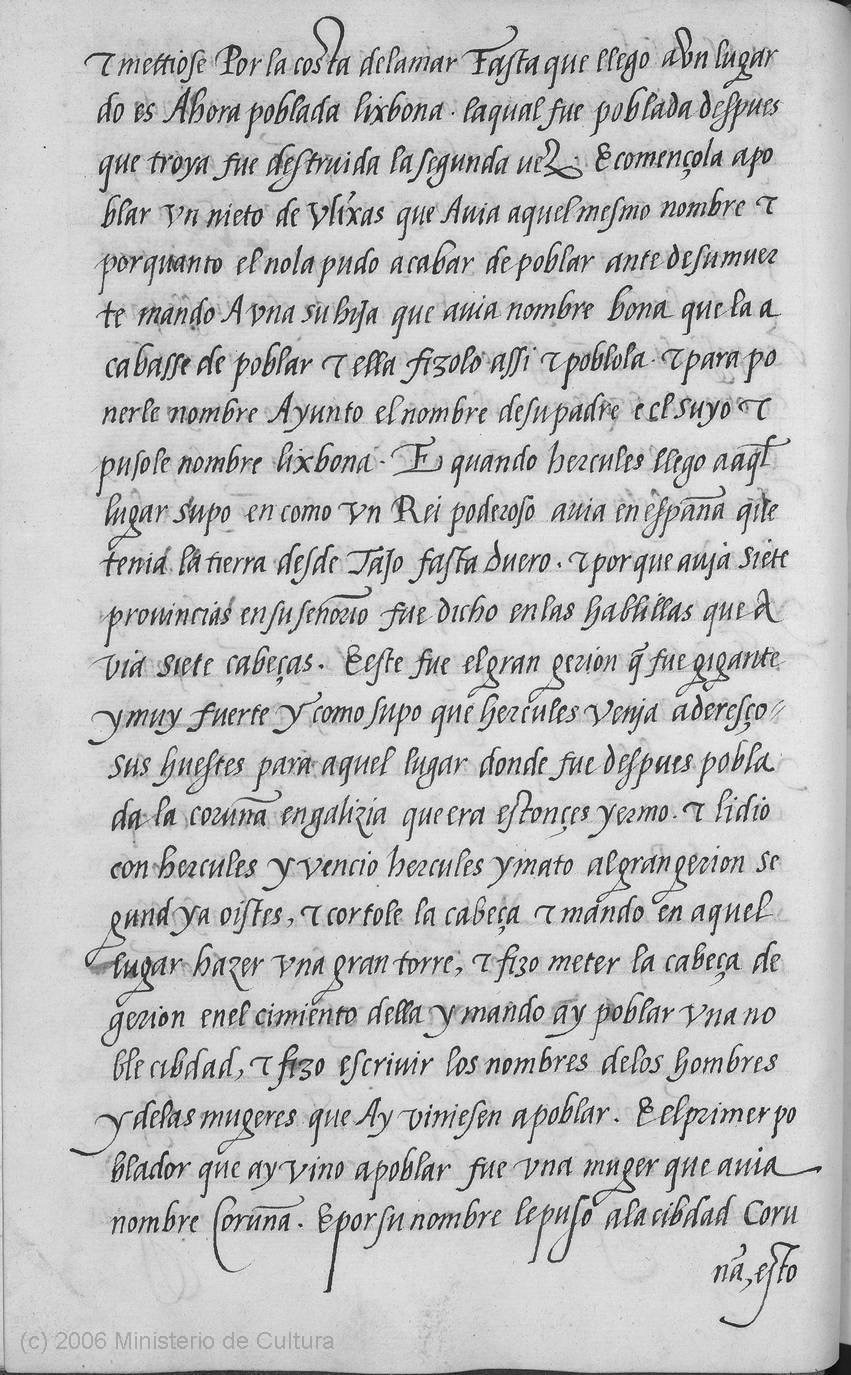 ⁊ mettiose Por la costa delamar Fasta que llego a vn lugar
do es Ahora poblada lixbona · laqual fue poblada despues
que troya fue destruida la segunda vez. & començola apo
blar vn nieto de Vlixas que Auia aquel mesmo nombre ⁊
porquanto el nola pudo acabar de poblar ante desumuer
te mando A vna su hija que auia nombre bona que la a
cabasse de poblar ⁊ ella fizolo assi ⁊ poblola · ⁊ para po
nerle nombre Ayunto el nombre desu padre e el suyo ⁊
pusole nombre lixbona · E quando hercules llego a aql̃
lugar supo en como vn Rei poderoso auia en españa que
tenia la tierra desde Tajo fasta duero · ⁊ por que auja siete
prouincias ensu señorio fue dicho enlas hablillas que A
via siete cabeças. & este fue el gran gerion q̃ fue gigante
y muy fuerte y como supo que hercules venja adereşço
sus huestes para aquel lugar donde fue despues pobla
da la coruña en galizia que era estonçes yermo. ⁊ lidio
con hercules y vencio hercules y mato al gran gerion se
gund ya oistes, ⁊ cortole la cabeça ⁊ mando en aquel
lugar hazer vna gran torre, ⁊ fizo meter la cabeça de
gerion enel cimiento della y mando ay poblar vna no
ble cibdad, ⁊ fizo escrivir los nombres delos hombres
y delas mugeres que Ay viniesen a poblar. & el primer po
blador que ay vino a poblar fue vna muger que auia
nombre Coruña. & por su nombre le puso ala cibdad Coru
ña, esto
(c) 2006 Ministerio de Cultura